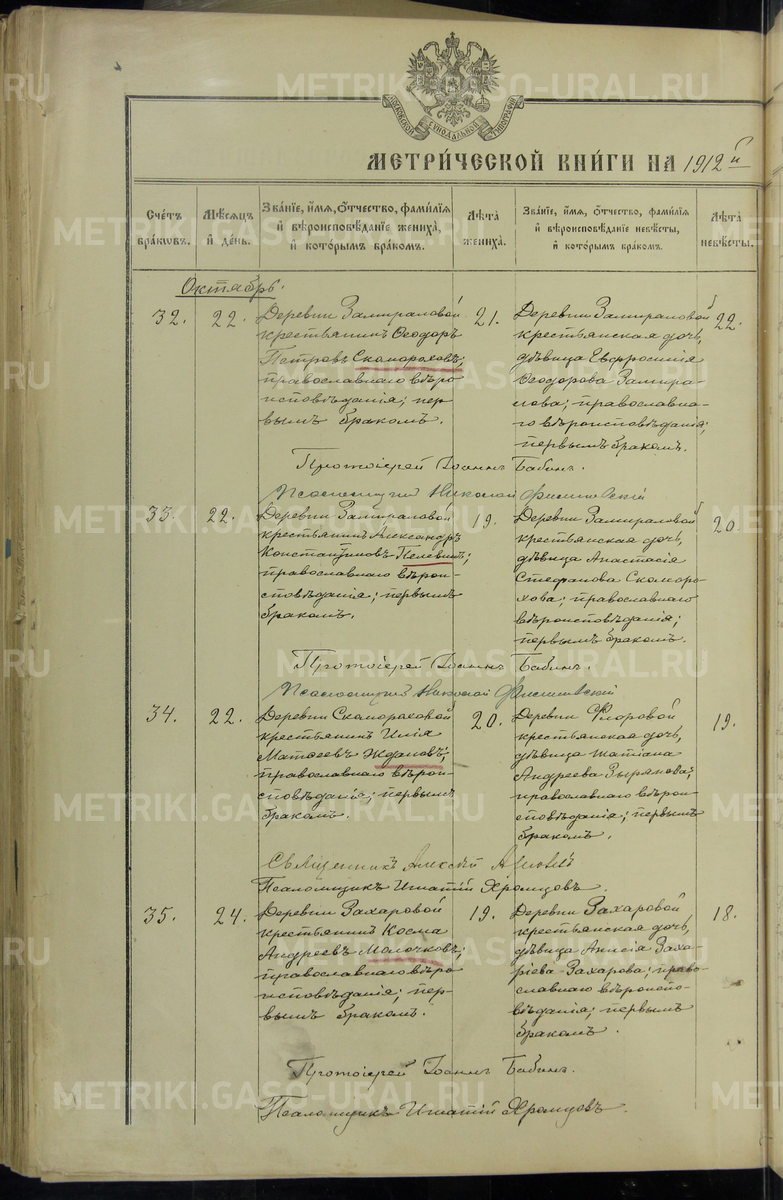 МОСКОВСКОЙ СѴНОДАЛЬНОЙ ТИПОГРАФІИ
МЕТРИ́ЧЕСКОЙ КНИ́ГИ НА 1912й
Счётъ бра́ковъ.
Мѣ́сяцъ и҆ де́нь.
Зва́нїе, и҆́мя, ѻ҆́тчество, фами́лїя и҆ вѣроисповѣ́данїе жениха̀, и҆ кото́рымъ бра́комъ.
Лѣ́та жениха̀.
Зва́нїе, и҆́мя, ѻ҆́тчество, фами́лїя и҆ вѣроисповѣ́данїе невѣ́сты, и҆ кото́рымъ бра́комъ.
Лѣ́та невѣ́сты.
Октябрь.
32. 22.
Деревни Замираловой
крестьянинъ Ѳеодоръ
Петровъ Скомороховъ;
православнаго вѣро-
исповѣданія; пер-
вымъ бракомъ.
21.
Деревни Замираловой
крестьянская дочь,
дѣвица Евфросинія
Ѳеодорова Замира-
лова; православна-
го вѣроисповѣданія;
первымъ бракомъ.
22.
Протоіерей Іоаннъ Бабинъ.
Псаломщикъ Николай
33. 22.
Деревни Замираловой
крестьянинъ Александръ
Константиновъ Пелевинъ;
православнаго вѣрои-
сповѣданія; первымъ
бракомъ.
19.
Деревни Замираловой
крестьянская дочь,
дѣвица Анастасія
Стефанова Скоморо-
хова; православнаго
вѣроисповѣданія;
первымъ бракомъ.
20.
Протоіерей Іоаннъ Бабинъ.
Псаломщикъ Николай
34. 22.
Деревни Скомороховой
крестьянинъ Илія
Матѳеевъ Ждановъ;
православнаго вѣрои-
сповѣданія; первымъ
бракомъ.
20.
Деревни Флоровой
крестьянская дочь,
дѣвица Татіана
Андреева Зырянова;
православнаго вѣрои-
сповѣданія; первымъ
бракомъ.
19.
Священникъ Алексѣй
Псаломщикъ Игнатій Хромцовъ.
35. 24.
Деревни Захаровой
крестьянинъ Косма
Андреевъ Молочковъ;
православнаго вѣро-
исповѣданія; пер-
вымъ бракомъ.
19.
Деревни Захаровой
крестьянская дочь,
дѣвица Анисія Заха-
ріева Захарова; право-
славнаго вѣроиспо-
вѣданія; первымъ
бракомъ.
18.
Протоіерей Іоаннъ Бабинъ.
Псаломщикъ Игнатій Хромцовъ.
METRIKI.GASO-URAL.RU